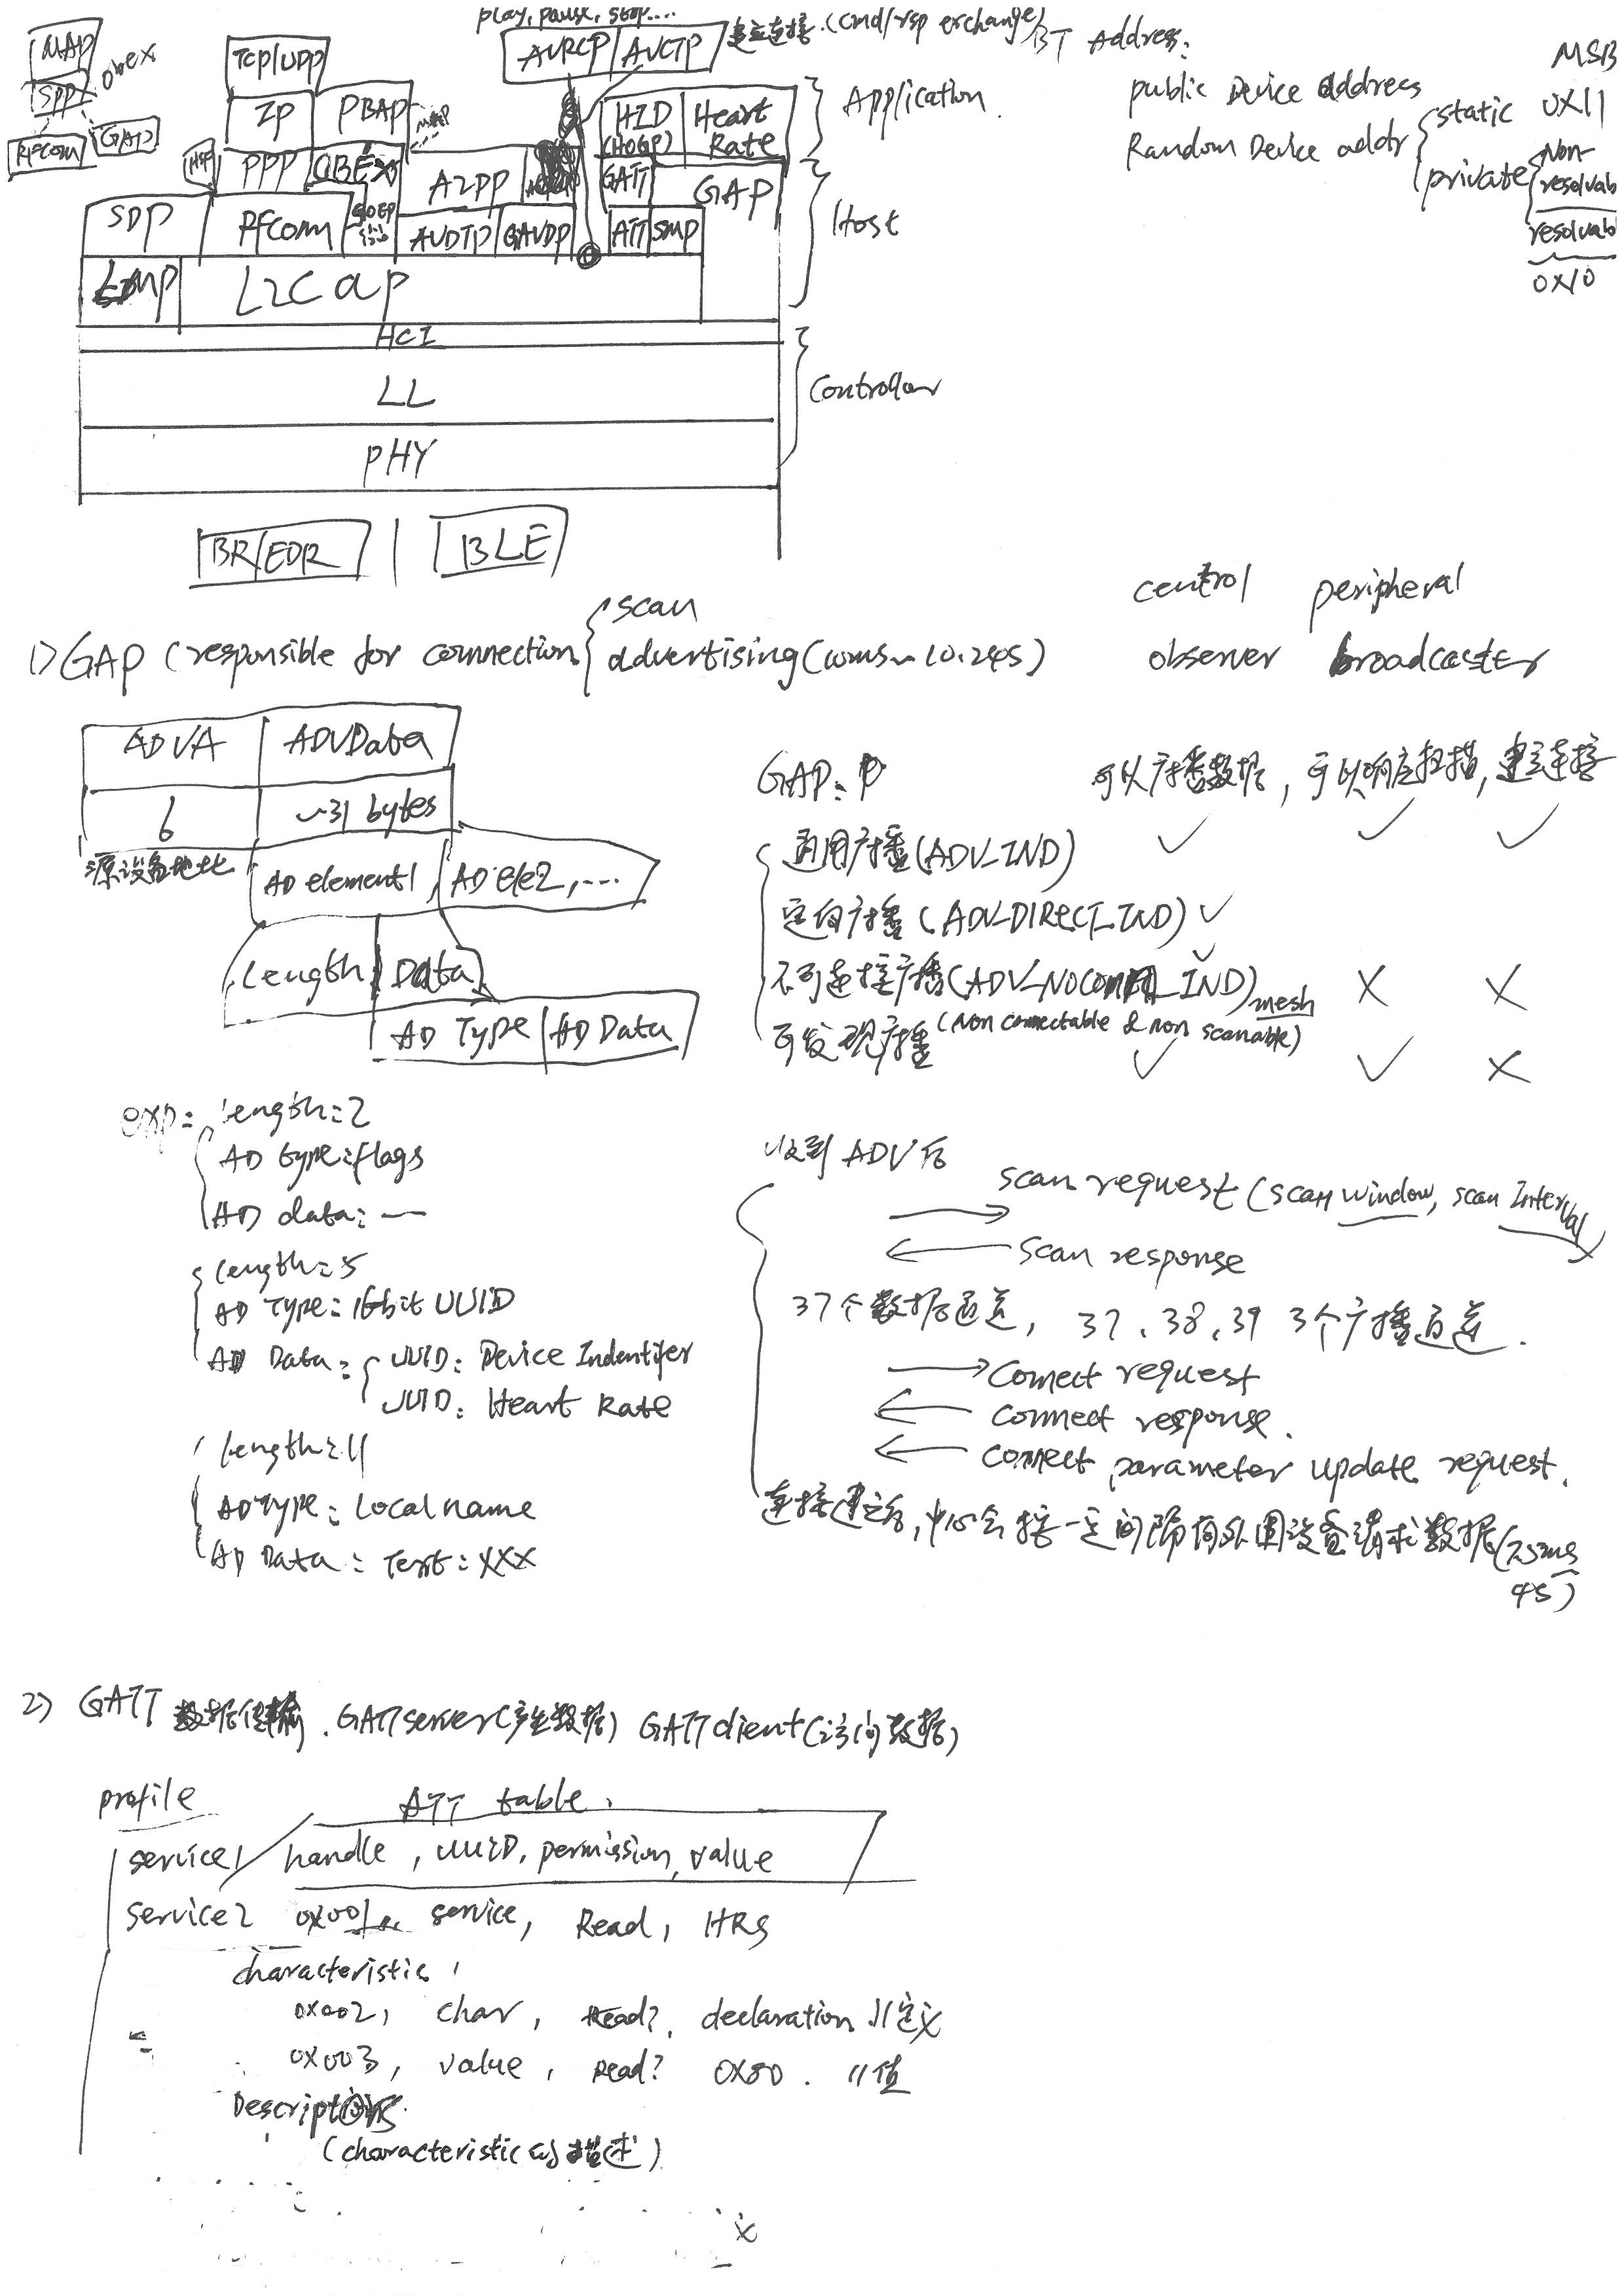 play, pause, stop....
MAP
obex
SPP
RFcom GAP
TCP/UDP
IP PBAP
HSP PPP OBEX
SDP RFComm GOEP
A2DP
AVDTP GAVDP
AVRCP AVCTP 建立连接.(cmd/rsp exchange)
HID (HOGP) Heart Rate
GATT GAP
ATT SMP
L2Cap
Application
Host
HCI
LL
PHY
Controller
BR/EDR | BLE
BT Address:
MSB
public Device address
Random Device addr static 0X11
private Non-resolvab
resolvab
0X10
1) GAP (responsible for connection scan
advertising(10ms~10.24s)
control peripheral
observer broadcaster
ADVA ADVData
6 ~31 bytes
源设备地址
AD element1, AD ele2, ....
Length Data
AD Type AD Data
exp: length:2
AD type:flags
AD data: —
length:5
AD Type: 16bit UUID
AD Data: UUID: Device Indentifer
UUID: Heart Rate
length:11
AD Type: Local name
AD Data: Text: XXX
GAP: 可以广播数据, 可以响应扫描, 建立连接
通用广播(ADV_IND) ✓ ✓ ✓
定向广播(ADV_DIRECT_IND) ✓
不可连接广播(ADV_NOCONN_IND) mesh ✓ X X
(Non connectable & non scanable)
可发现广播 ✓ ✓ X
收到ADV后
→ scan request (scan window, scan Interval
← scan response
37个数据通道, 37、38、39 3个广播通道.
→ connect request
← connect response.
← connect parameter update request.
连接建立后, 中心会按一定间隔向外围设备请求数据(7.5ms
4s)
2) GATT 数据传输. GATT server(产生数据) GATT client(访问数据)
profile
ATT table.
service1 handle, UUID, permission, value
service2 0x001 service, Read, HRS
characteristic,
0x002, char, Read?, declaration //定义
0x003, value, Read? 0X80. //值
Descriptors
(characteristic的描述)